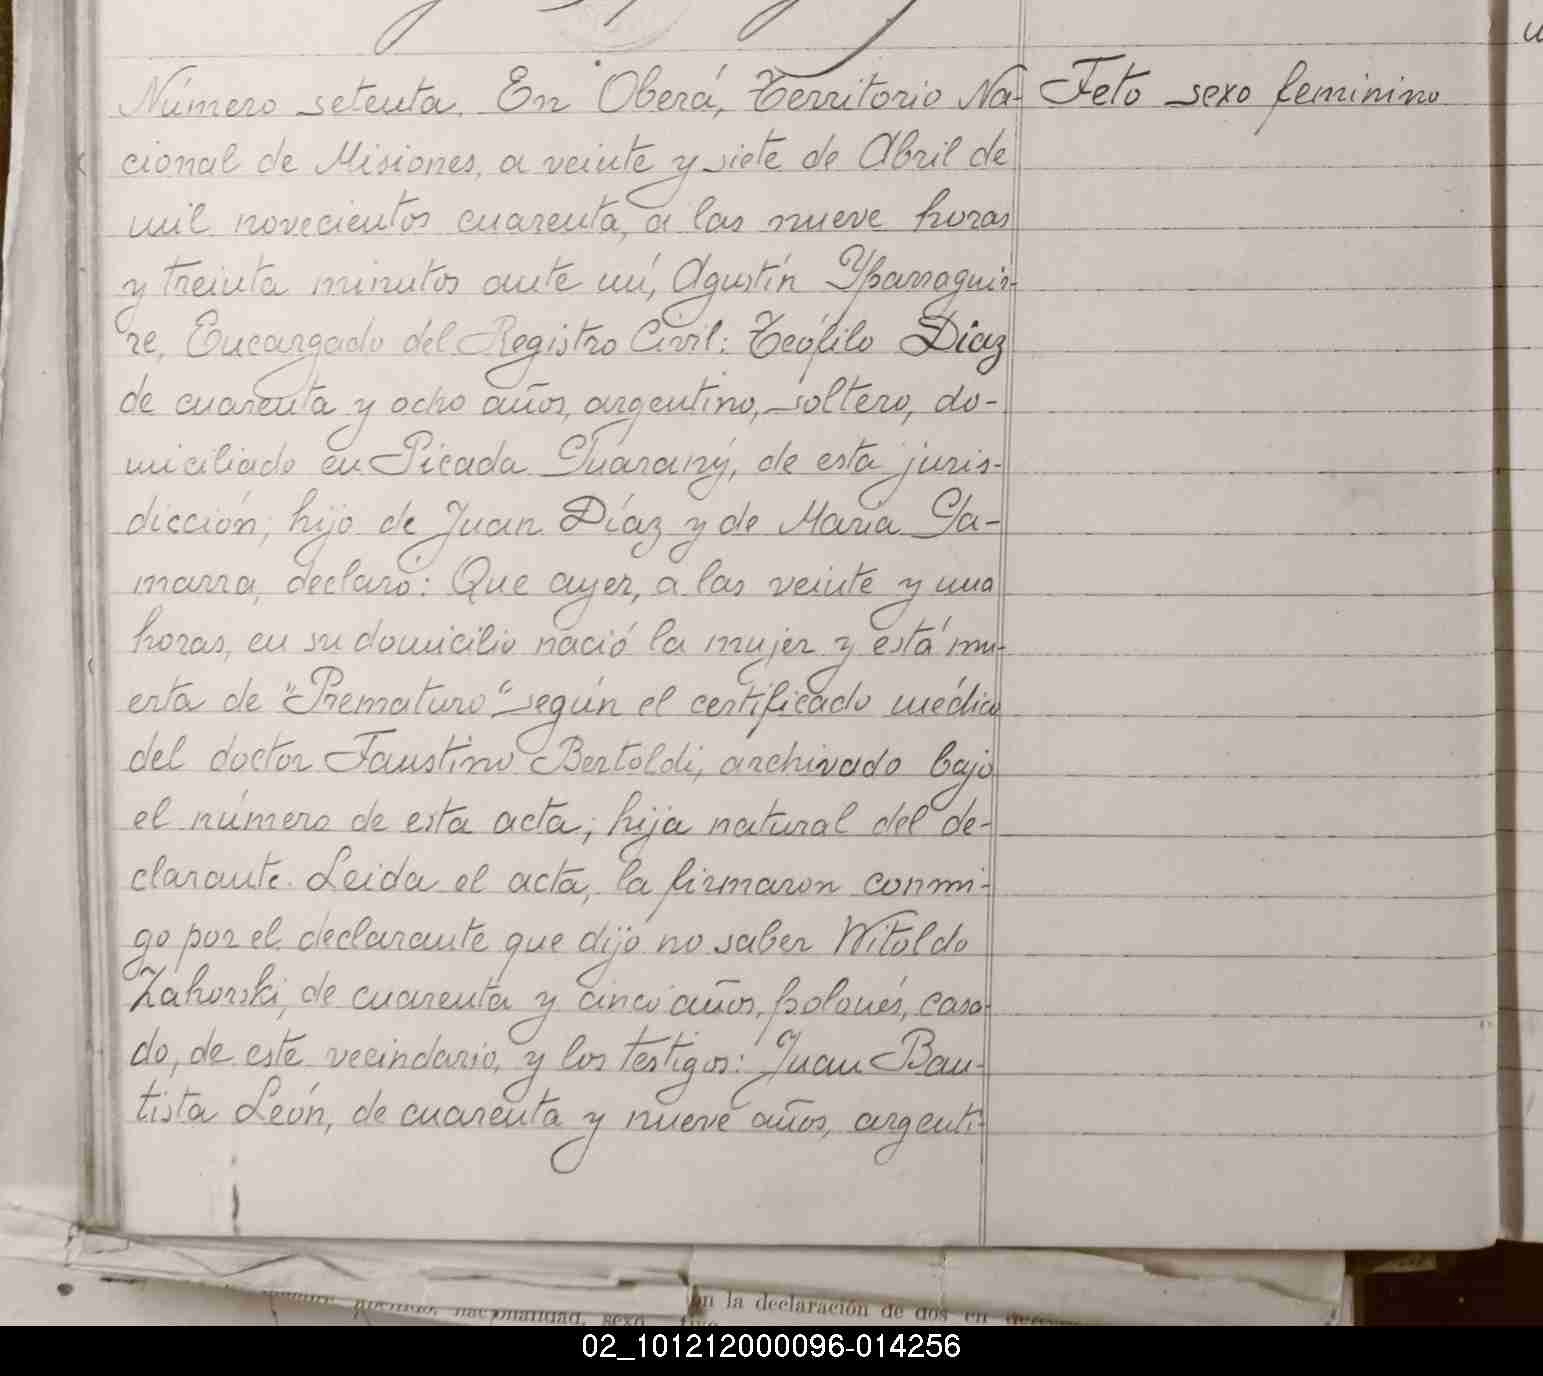 Número setenta. En Oberá, Territorio Na-
Feto sexo feminino
cional de Misiones, a veinte y siete de Abril de
mil novecientos cuarenta, a las nueve horas
y treinta minutos ante mí, Agustín Yparraguir-
re, Encargado del Registro Civil: Teófilo Díaz
de cuarenta y ocho años, argentino, soltero, do-
miciliado en Picada Guarany, de esta juris-
dicción, hijo de Juan Díaz y de María Ga-
marra, declaró: Que ayer, a las veinte y una
horas, en su domicilio nació la mujer y está mu-
erta de "Prematuro" según el certificado médico
del doctor Faustino Bertoldi, archivado bajo
el número de esta acta; hija natural del de-
clarante. Leida el acta, la firmaron conmi-
go por el declarante que dijo no saber Witoldo
Zahorski, de cuarenta y cinco años, polonés, casa-
do, de este vecindario, y los testigos: Juan Bau-
tista León, de cuarenta y nueve años, argenti-
on la declaración de dos en
nacionalidad, sexo
02_101212000096-014256